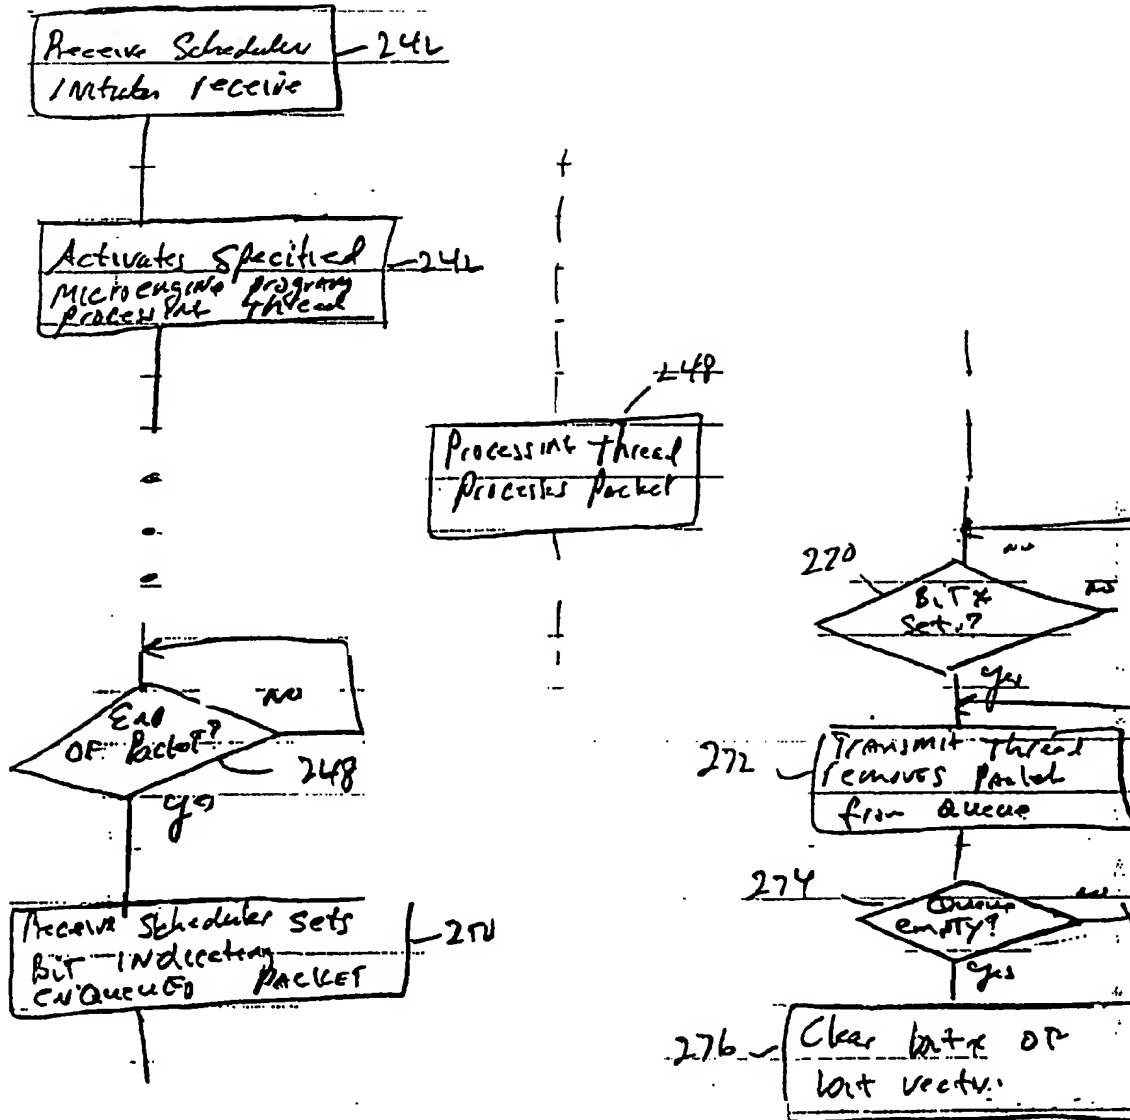 Receive Scheduler
Initiates receive
242
Activates Specified
Microengine program
processing thread
242
248
Processing thread
Processes Packet
End
OF Packet?
NO
248
yes
Receive Scheduler Sets
Bit Indicating
ENQUEUED PACKET
250
270
Bit x
Set?
NO
NO
yes
272
Transmit thread
removes Packet
from Queue
274
Queue
empty?
NO
yes
276
Clear bit x OF
bit vector